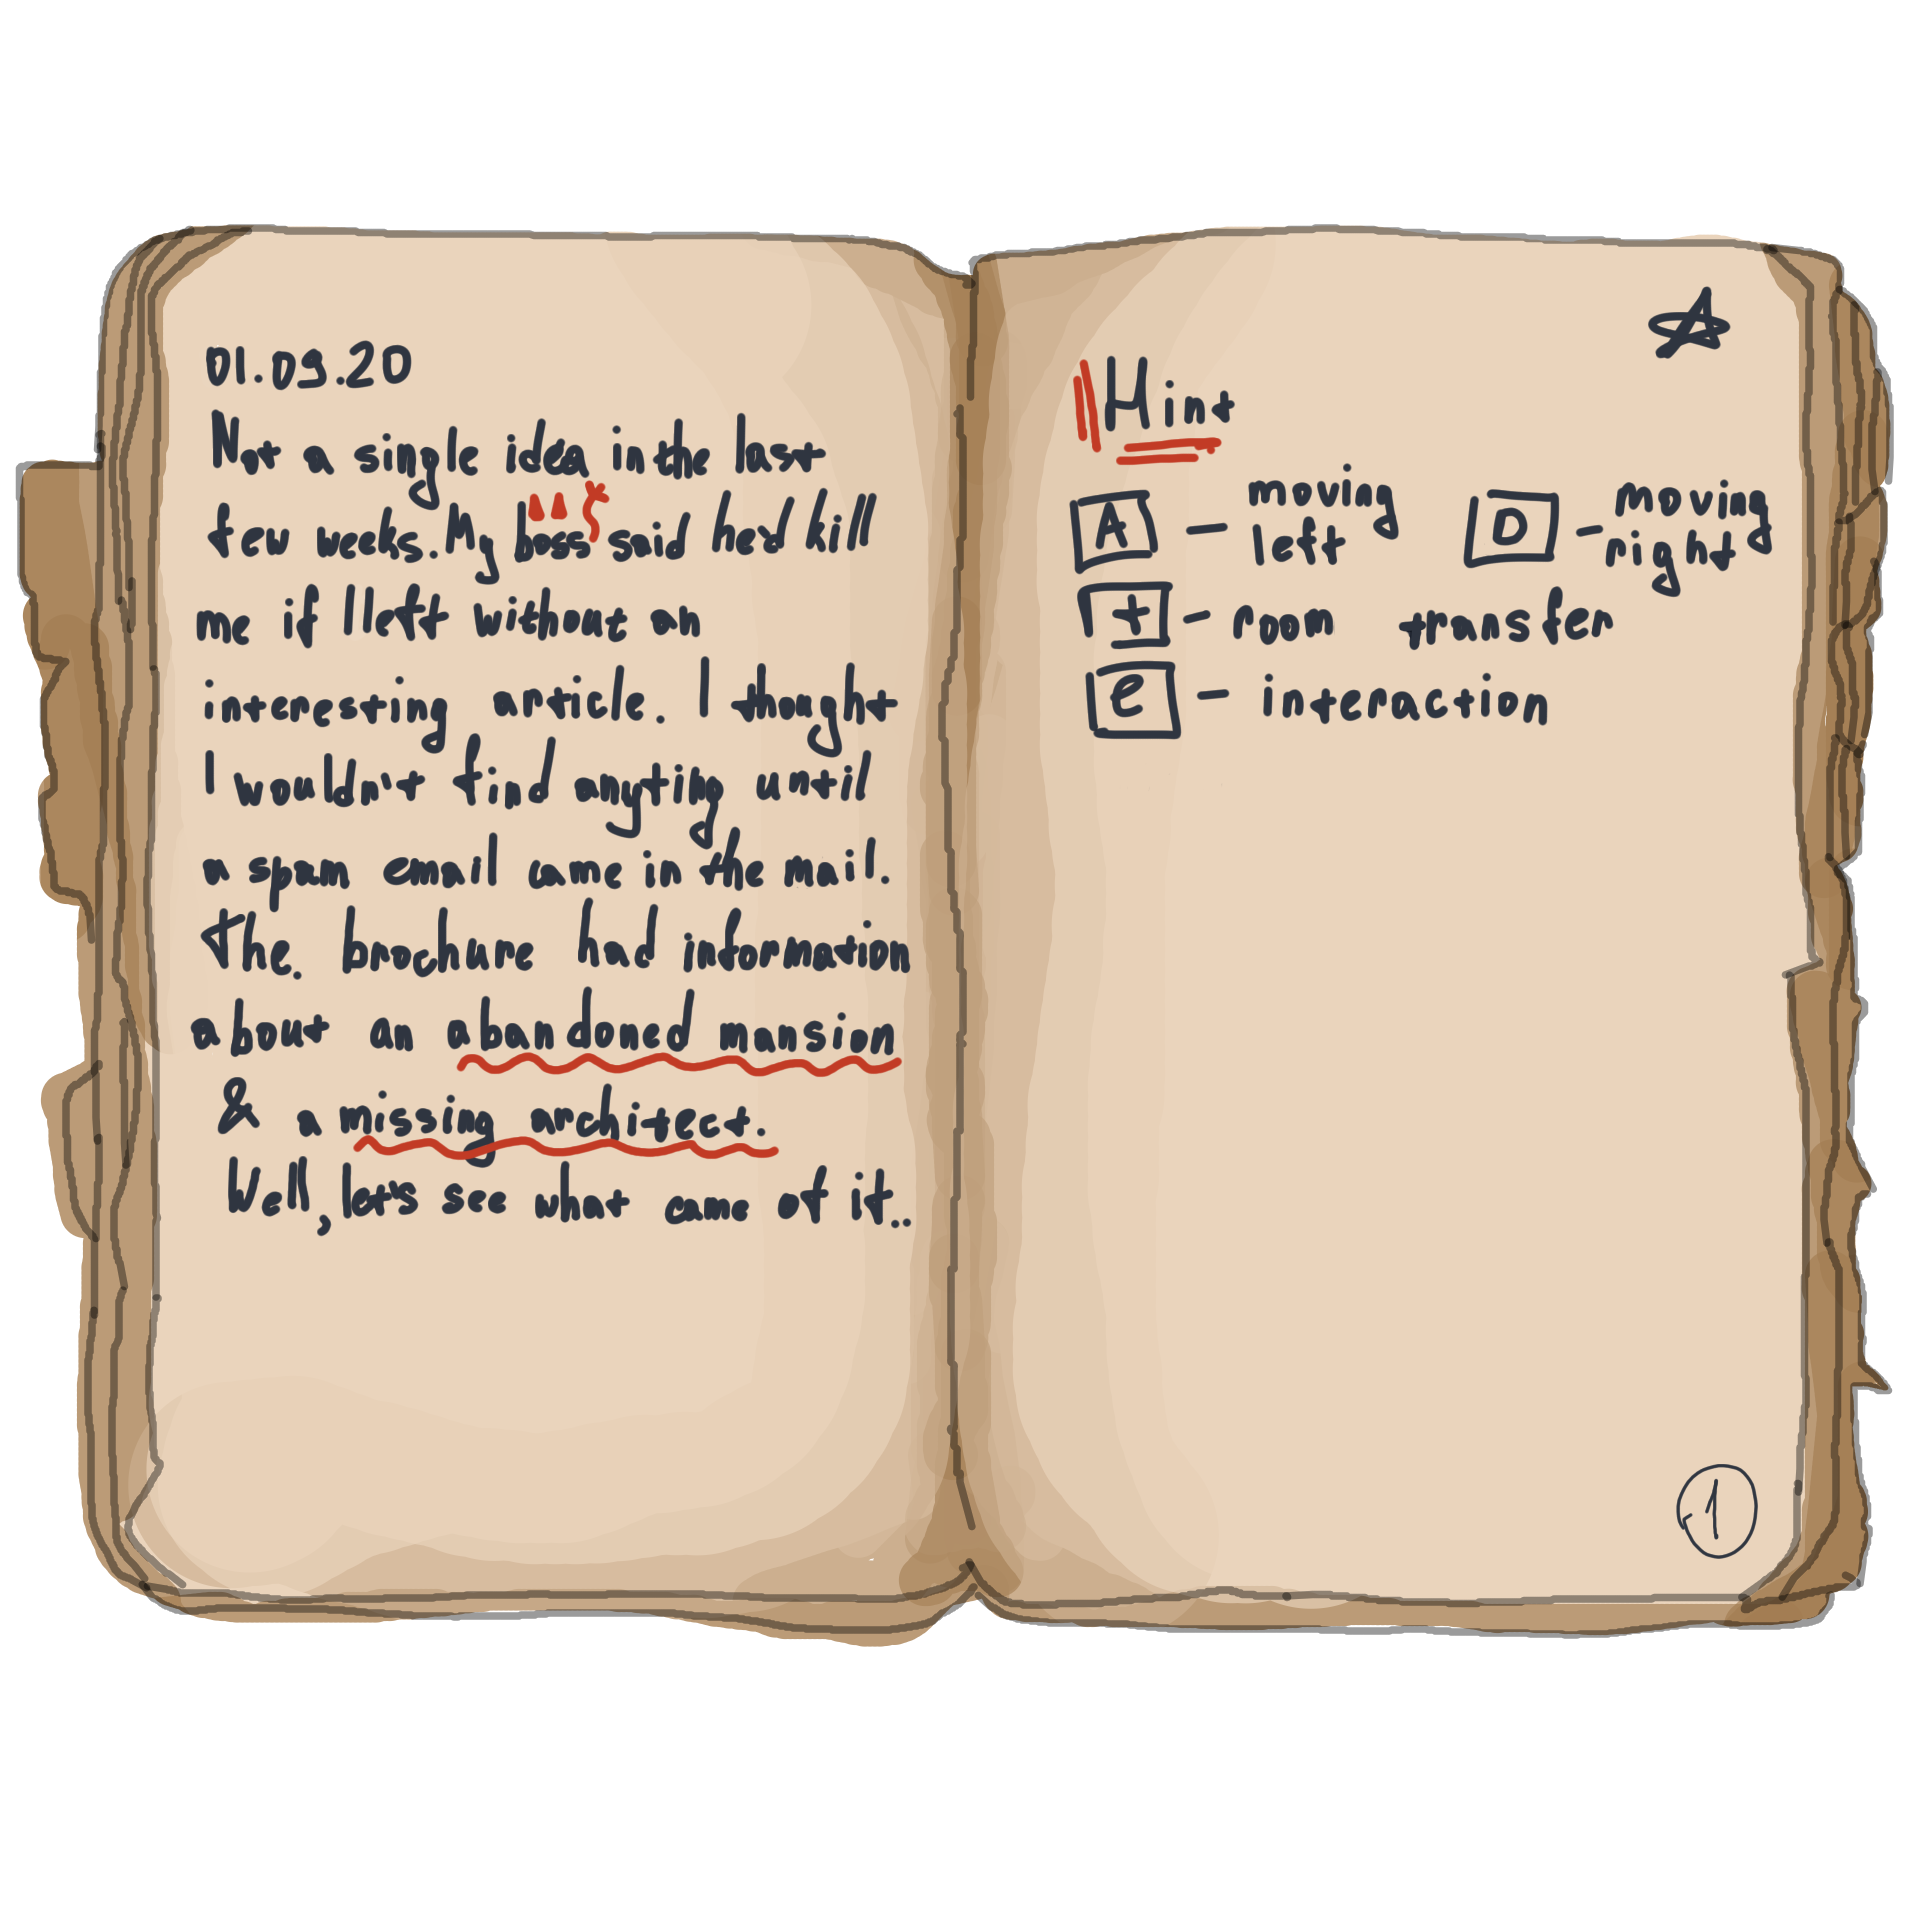 01.09.20
Not a single idea in the last
few weeks. My boss said he'd kill
me if I left without an
interesting article. I thought
I wouldn't find anyting until
a spam email came in the mail.
The. brochure had information
about an abandoned mansion
& a missing architect.
Well, let's see what came of it..
Hint
A - moving left
D - moving right
t - room transfer
e - interaction
1